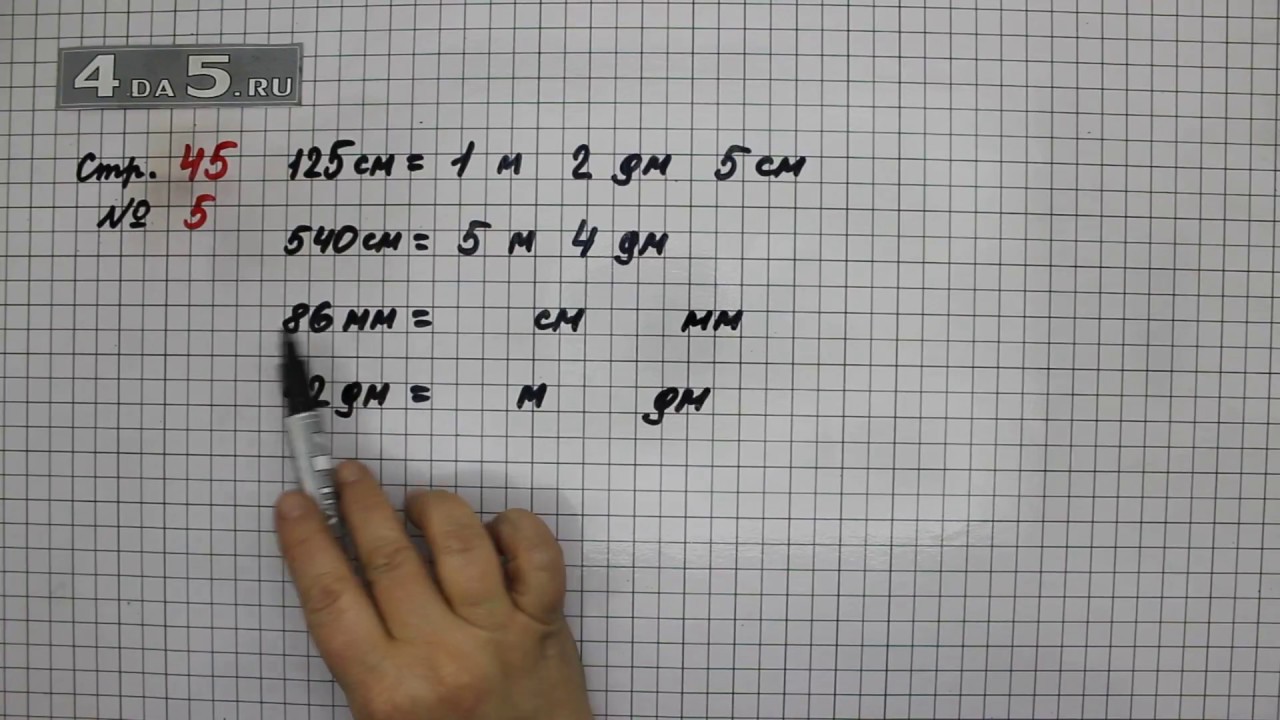 4 DA 5.RU
Стр. 45 125 см = 1 м 2 дм 5 см
№ 5
540 см = 5 м 4 дм
86 мм = см мм
2 дм = м дм